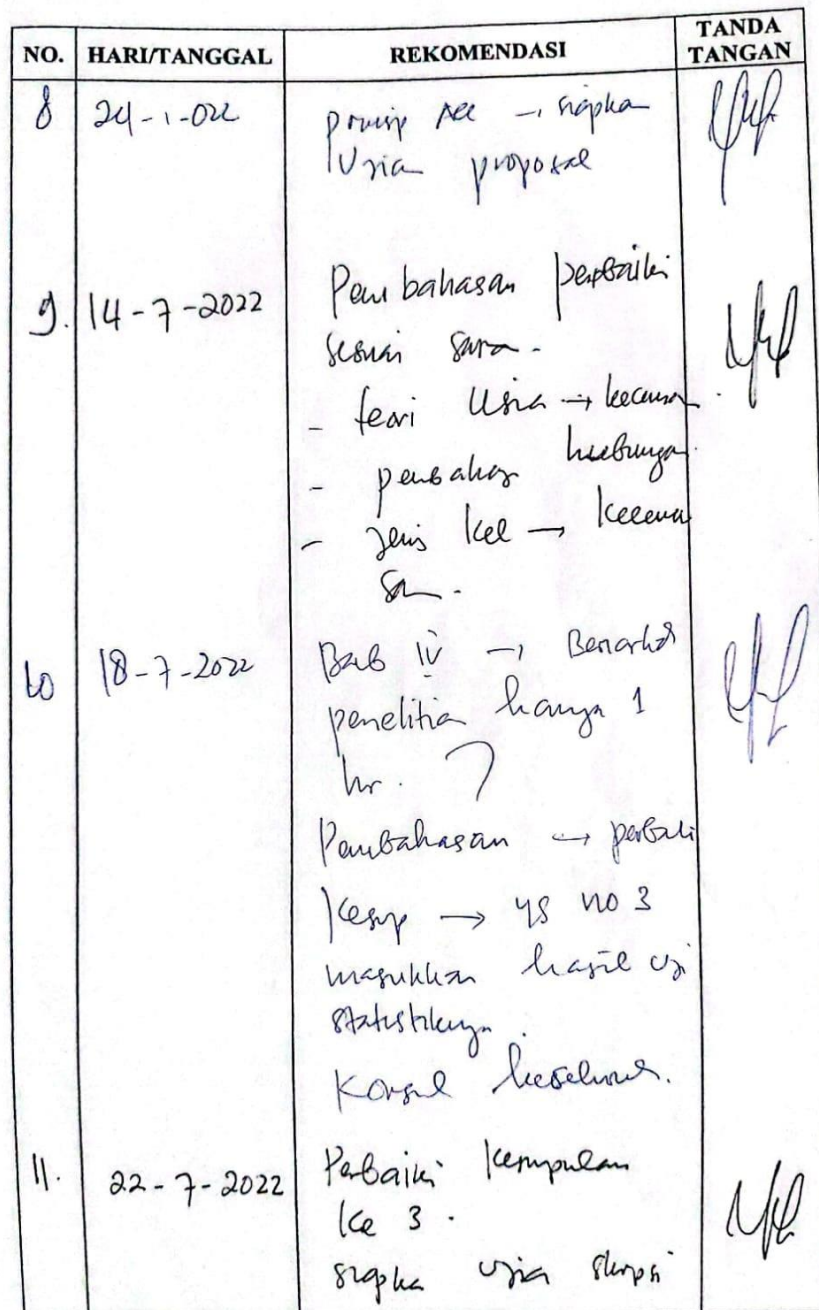 NO. HARI/TANGGAL REKOMENDASI TANDA TANGAN
8 24-1-022 prinsip Acc → siapka
Ujia proposal
9. 14-7-2022 Pembahasan perbaiki
sesuai sara.
- teori Usia → kecemasa
- pembahas hubunga
- Jenis Kel → Kecema
sa.
10 18-7-2022 Bab IV → Benarkah
penelitia hanya 1
hr. ?
Pembahasan → perbaiki
Kesimp → yg no 3
masukkan hasil uji
statistiknya
Konsul keseluruh.
11. 22-7-2022 Perbaiki Kesimpulan
Ke 3.
siapka ujia skripsi